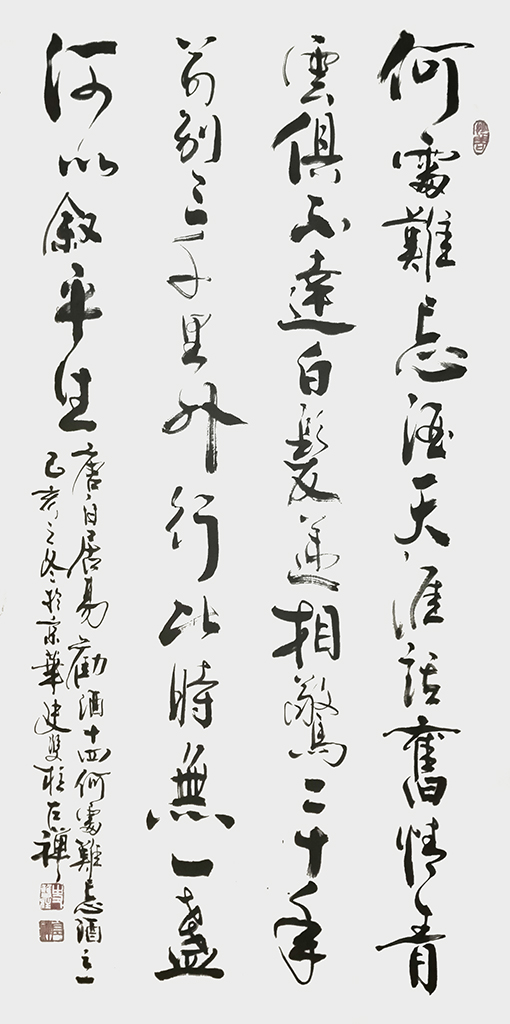 何處難忘酒天涯話舊情青
雲俱不達白髮遞相驚二十年
前別三千里外行此時無一盞
何以敘平生
唐白居易勸酒十四何處難忘酒之一
己亥之冬於京華建雙